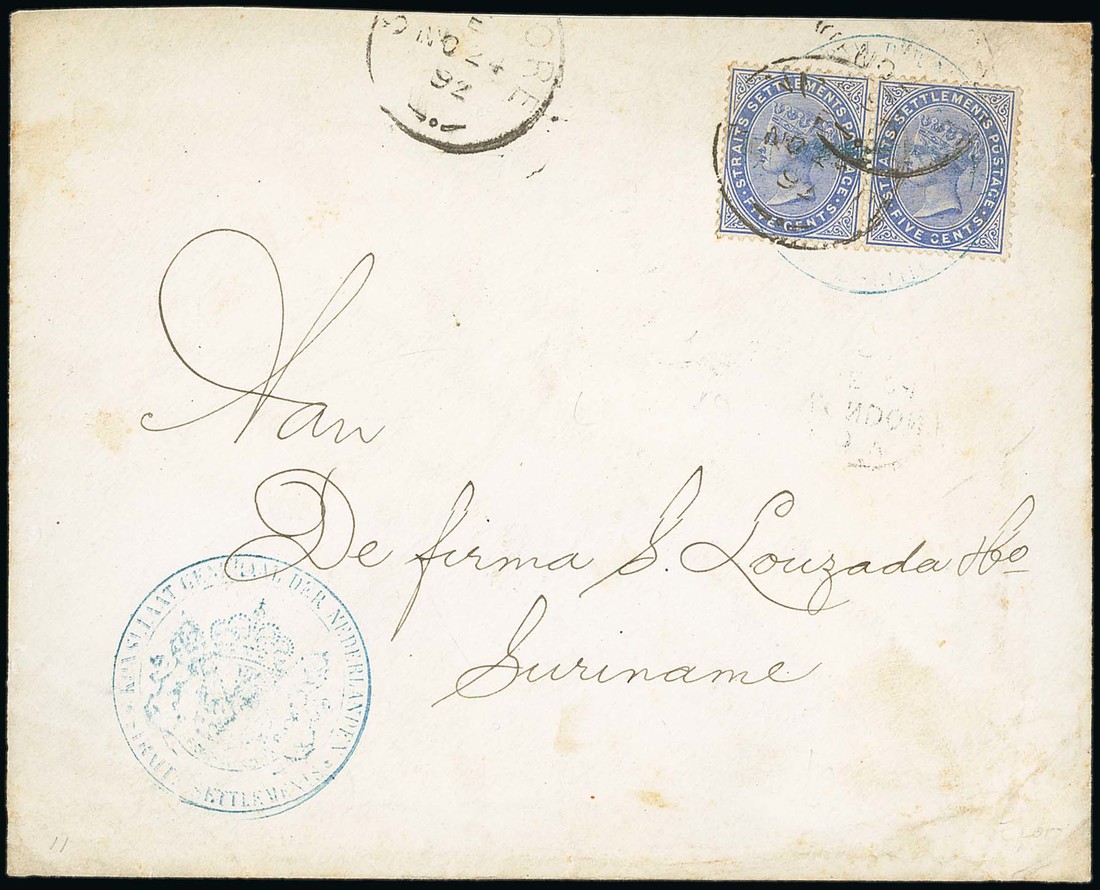 ORE
NO 24
92
STRAITS SETTLEMENTS POSTAGE
FIVE CENTS
NO 24
92
STRAITS SETTLEMENTS POSTAGE
FIVE CENTS
Aan
De firma S. Louzada & Co
Suriname
KONSULAAT GENERAAL DER NEDERLANDEN
STRAITS SETTLEMENTS
11